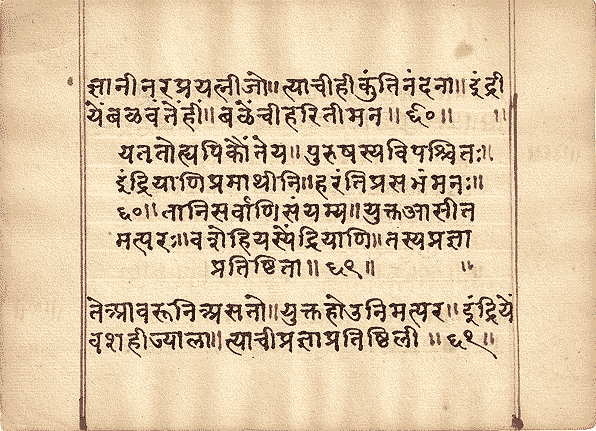 ज्ञानी नर प्रयत्नी जो॥ त्याची ही कुंतिनंदना॥ इंद्री
यें बळवंतें हीं॥ बळेंची हरिती मन॥ ६०॥ ॥
यततो ह्यपि कौंतेय॥ पुरुषस्य विपश्चितः॥
इंद्रियाणि प्रमाथीनि॥ हरंति प्रसभं मनः॥
६०॥ तानि सर्वाणि संयम्य॥ युक्त आसीत
मत्परः॥ वशे हि यस्येंद्रियाणि॥ तस्य प्रज्ञा
प्रतिष्ठिता॥ ६१॥ ॥
तें आवरूनि असतो॥ युक्त होउनि मत्पर॥ इंद्रियें
वश ही ज्याला॥ त्याची प्रज्ञा प्रतिष्ठिली ॥ ६१॥